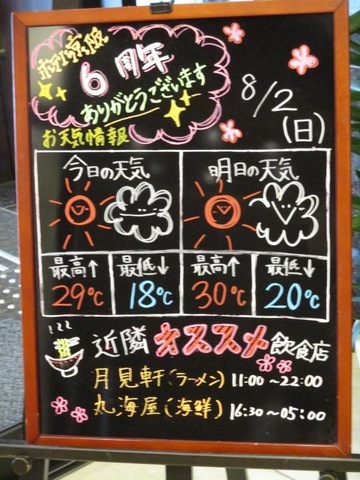 6周年
ありがとうございます
8/2
(日)
お天気情報
今日の天気
明日の天気
最高↑
最低↓
最高↑
最低↓
29℃
18℃
30℃
20℃
近隣オススメ飲食店
月見軒(ラーメン) 11:00〜22:00
丸海屋(海鮮) 16:30〜05:00